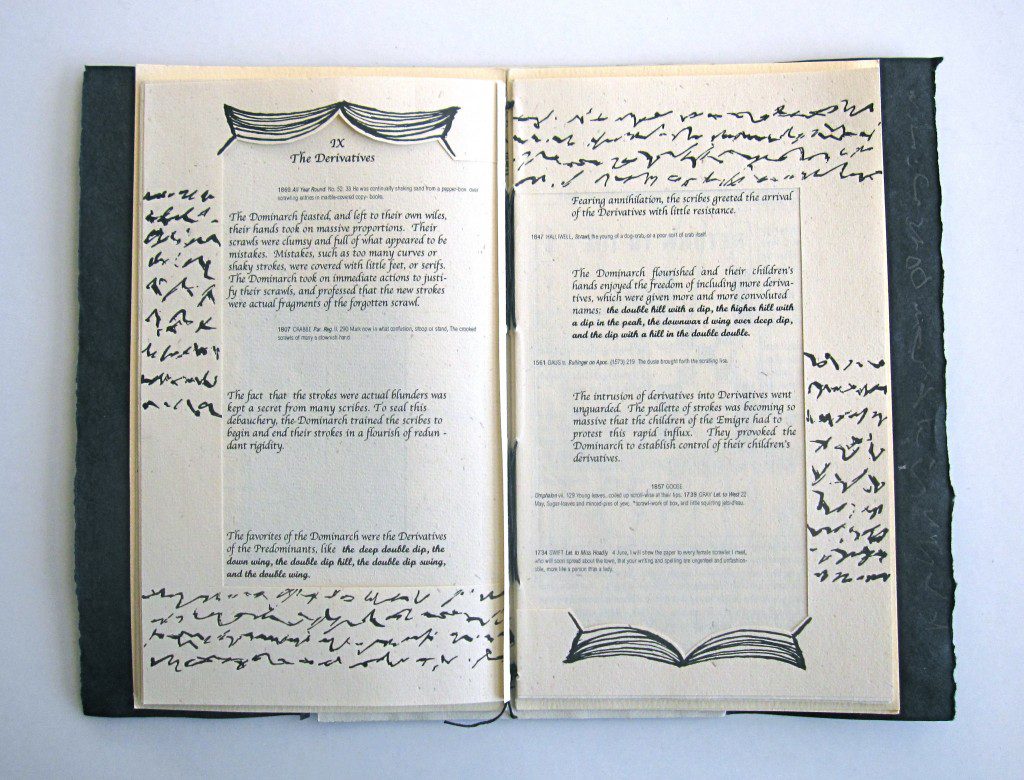 IX
The Derivatives
1869 All Year Round. No. 52. 33 He was continually shaking sand from a pepper-box over
scrawling entries in marble-covered copy- books.
The Dominarch feasted, and left to their own wiles,
their hands took on massive proportions. Their
scrawls were clumsy and full of what appeared to be
mistakes. Mistakes, such as too many curves or
shaky strokes, were covered with little feet, or serifs.
The Dominarch took on immediate actions to justi-
fy their scrawls, and professed that the new strokes
were actual fragments of the forgotten scrawl.
1807 CRABBE Par. Reg. II. 290 Mark now in what confusion, stoop or stand, The crooked
scrawls of many a clownish hand.
The fact that the strokes were actual blunders was
kept a secret from many scribes. To seal this
debauchery, the Dominarch trained the scribes to
begin and end their strokes in a flourish of redun -
dant rigidity.
The favorites of the Dominarch were the Derivatives
of the Predominants, like the deep double dip, the
down wing, the double dip hill, the double dip swing,
and the double wing.
Fearing annihilation, the scribes greeted the arrival
of the Derivatives with little resistance.
1847 HALLIWELL, Scrawl, the young of a dog-crab, or a poor sort of crab itself.
The Dominarch flourished and their children's
hands enjoyed the freedom of including more deriva-
tives, which were given more and more convoluted
names: the double hill with a dip, the higher hill with
a dip in the peak, the downward wing over deep dip,
and the dip with a hill in the double double.
1561 DAUS tr. Bullinger on Apoc. (1573) 219 The duste brought forth the scralling lise.
The intrusion of derivatives into Derivatives went
unguarded. The pallette of strokes was becoming so
massive that the children of the Emigre had to
protest this rapid influx. They provoked the
Dominarch to establish control of their children's
derivatives.
1857 GOOSE
Omphalos vii. 129 Young leaves, coiled up scroll-wise at their tips. 1739 GRAY Let. to West 22
May, Sugar-loaves and minced-pies of yew, scrawl-work of box, and little squirting jets-d'eau.
1734 SWIFT Let. to Miss Hoadly 4 June, I will shew the paper to every female scrawler I meet,
who will soon spread about the town, that your writing and spelling are ungenteel and unfashion-
able, more like a parson than a lady.